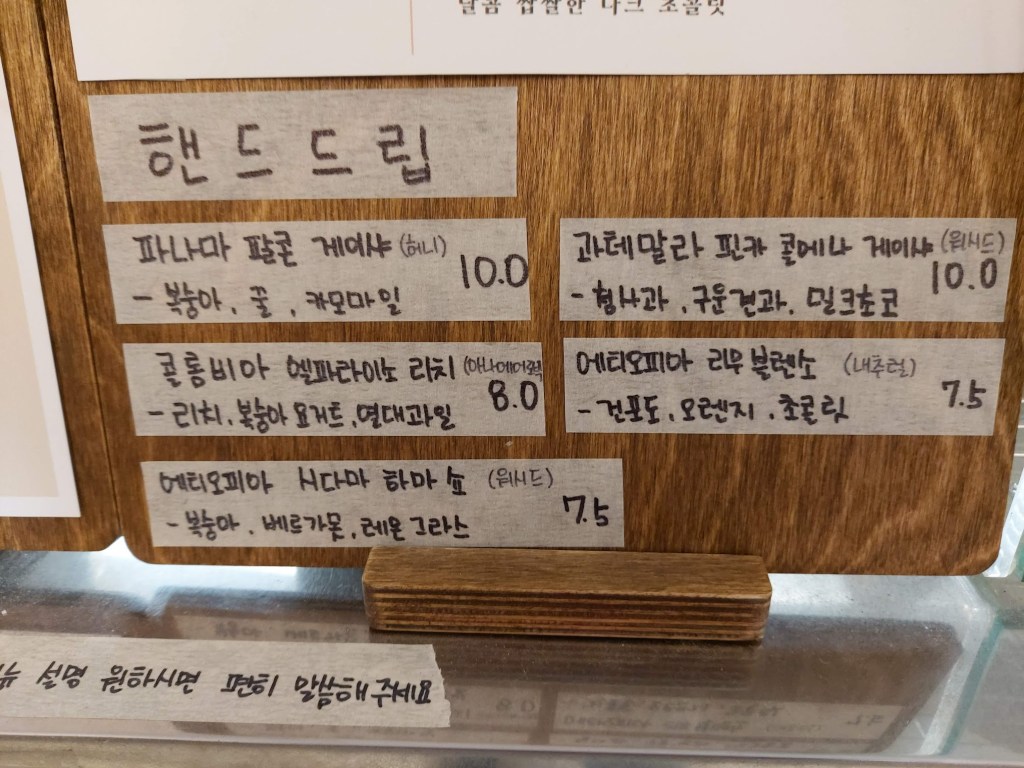 달콤 쌉쌀한 다크 초콜릿
핸드드립
파나마 팔콘 게이샤 (허니)
10.0
- 복숭아, 꿀, 카모마일
과테말라 핀카 콜메나 게이샤 (워시드)
10.0
- 청사과, 구운견과, 밀크초코
콜롬비아 엘파라이소 리치 (아나에어로빅)
8.0
- 리치, 복숭아 요거트, 열대과일
에티오피아 리무 블렌소 (내추럴)
7.5
- 건포도, 오렌지, 초콜릿
에티오피아 시다마 하마쇼 (워시드)
7.5
- 복숭아, 베르가못, 레몬그라스
뉴 설명 원하시면 편히 말씀해주세요